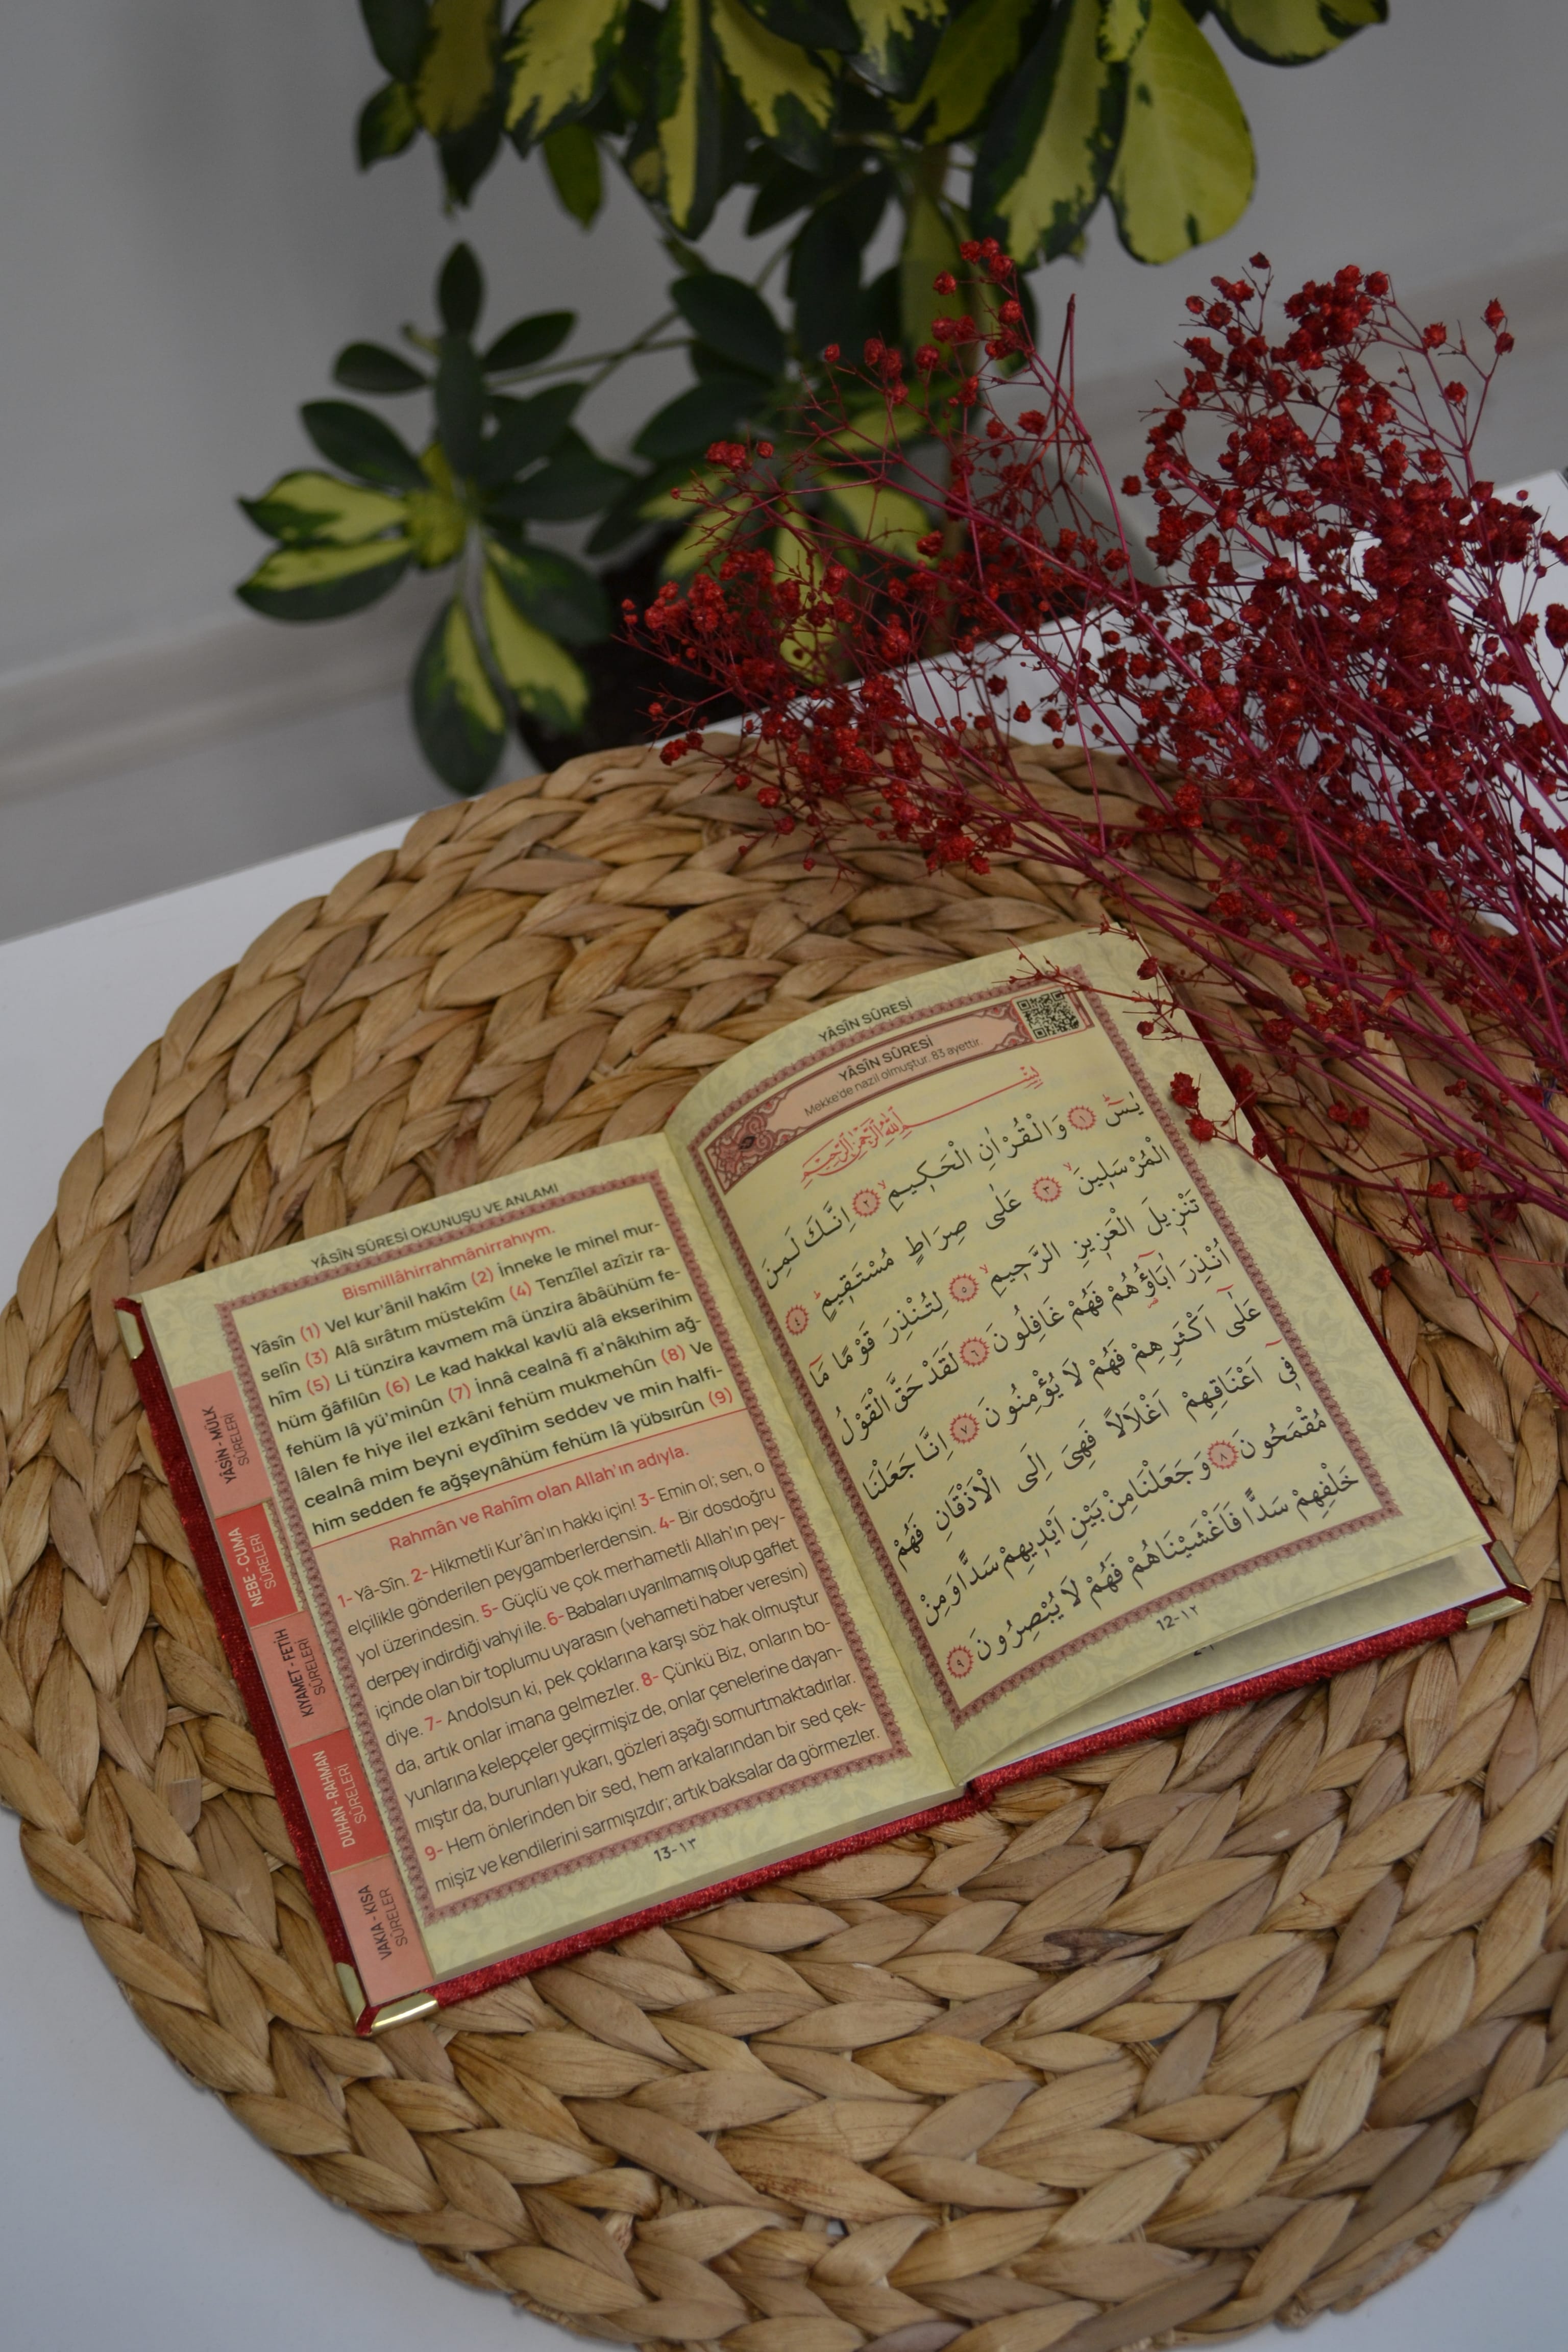 YÂSÎN SÛRESİ
YÂSÎN SÛRESİ
Mekke'de nazil olmuştur. 83 ayettir.
بِسْــــمِ اللّٰهِ الرَّحْمٰنِ الرَّحِيمِ
يٰسٓ ۚ ﴿١﴾ وَالْقُرْاٰنِ الْحَكٖيمِ ۙ ﴿٢﴾ اِنَّكَ لَمِنَ
الْمُرْسَلٖينَ ۙ ﴿٣﴾ عَلٰى صِرَاطٍ مُسْتَقٖيمٍ ؕ ﴿٤﴾
تَنْزٖيلَ الْعَزٖيزِ الرَّحٖيمِ ۙ ﴿٥﴾ لِتُنْذِرَ قَوْمًا مَٓا
اُنْذِرَ اٰبَٓاؤُ۬هُمْ فَهُمْ غَافِلُونَ ﴿٦﴾ لَقَدْ حَقَّ الْقَوْلُ
عَلٰٓى اَكْثَرِهِمْ فَهُمْ لَا يُؤْمِنُونَ ﴿٧﴾ اِنَّا جَعَلْنَا
فٖٓي اَعْنَاقِهِمْ اَغْلَالًا فَهِيَ اِلَى الْاَذْقَانِ فَهُمْ
مُقْمَحُونَ ﴿٨﴾ وَجَعَلْنَا مِنْ بَيْنِ اَيْدٖيهِمْ سَدًّا وَمِنْ
خَلْفِهِمْ سَدًّا فَاَغْشَيْنَاهُمْ فَهُمْ لَا يُبْصِرُونَ ﴿٩﴾
12-١٢
YÂSÎN SÛRESİ OKUNUŞU VE ANLAMI
Bismillâhirrahmânirrahıym.
Yâsîn (1) Vel kur'ânil hakîm (2) İnneke le minel mur-
selîn (3) Alâ sırâtım müstekîm (4) Tenzîlel azîzir ra-
hîm (5) Li tünzira kavmem mâ ünzira âbâühüm fe-
hüm ğâfilûn (6) Le kad hakkal kavlü alâ ekserihim
fehüm lâ yü'minûn (7) İnnâ cealnâ fî a'nâkıhim ağ-
lâlen fe hiye ilel ezkâni fehüm mukmehûn (8) Ve
cealnâ mim beyni eydîhim seddev ve min halfi-
him sedden fe ağşeynâhüm fehüm lâ yübsırûn (9)
Rahmân ve Rahîm olan Allah'ın adıyla.
1- Yâ-Sîn. 2- Hikmetli Kur'ân'ın hakkı için! 3- Emin ol; sen, o
elçilikle gönderilen peygamberlerdensin. 4- Bir dosdoğru
yol üzerindesin. 5- Güçlü ve çok merhametli Allah'ın pey-
derpey indirdiği vahyi ile. 6- Babaları uyarılmamış olup gaflet
içinde olan bir toplumu uyarasın (vehameti haber veresin)
diye. 7- Andolsun ki, pek çoklarına karşı söz hak olmuştur
da, artık onlar imana gelmezler. 8- Çünkü Biz, onların bo-
yunlarına kelepçeler geçirmişiz de, onlar çenelerine dayan-
mıştır da, burunları yukarı, gözleri aşağı somurtmaktadırlar.
9- Hem önlerinden bir sed, hem arkalarından bir sed çek-
mişiz ve kendilerini sarmışızdır; artık baksalar da görmezler.
13-١٣
YÂSİN - MÜLK
SÛRELERİ
NEBE - CUMA
SÛRELERİ
KIYAMET - FETİH
SÛRELERİ
DUHAN - RAHMAN
SÛRELERİ
VAKIA - KISA
SÛRELER